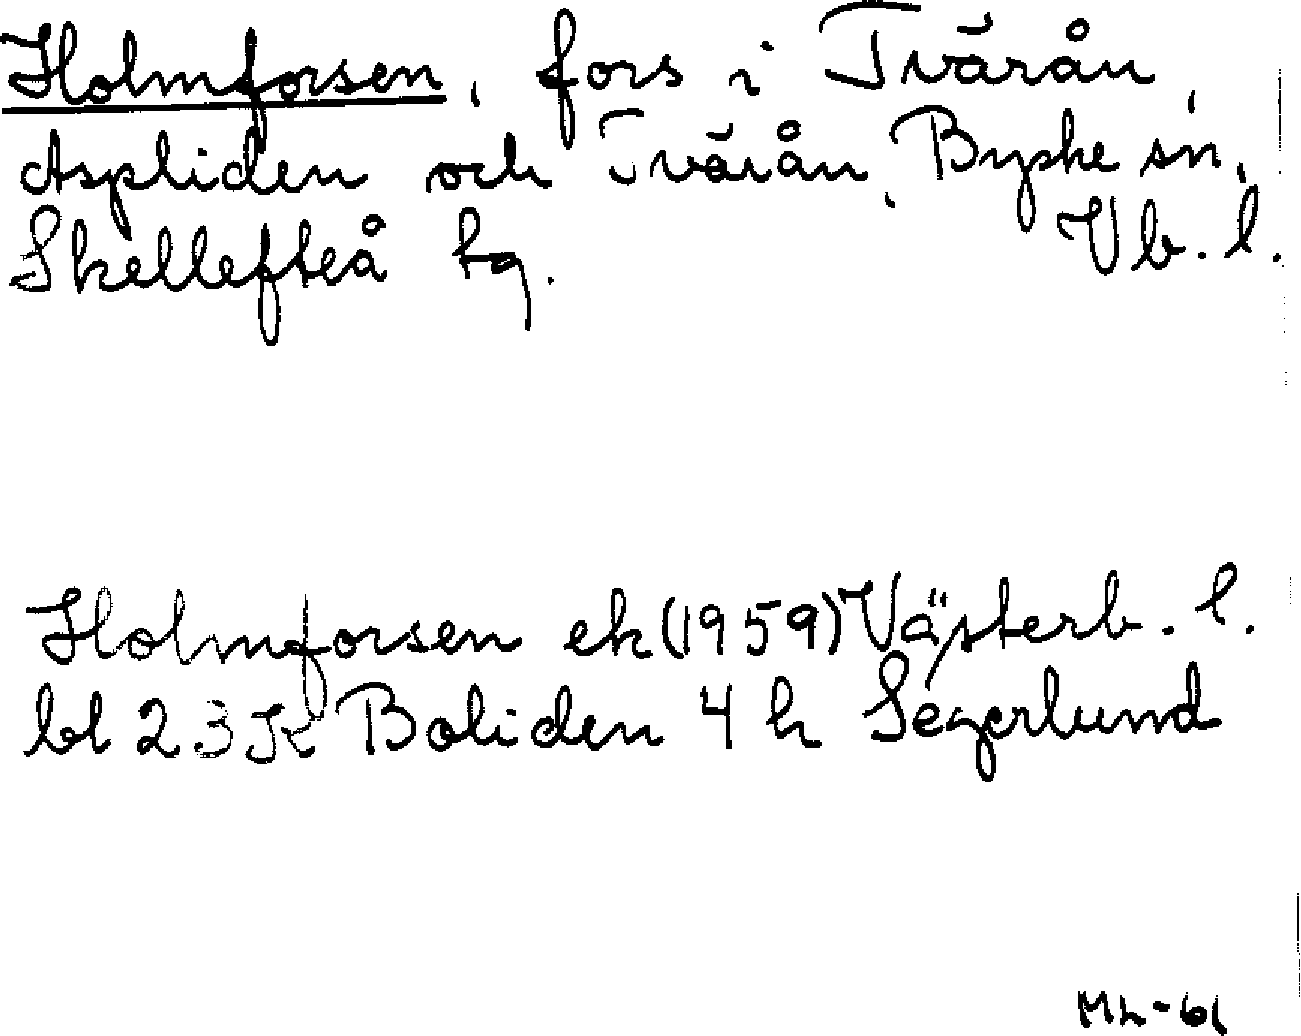 Holmforsen, fors i Tvärån,
Aspliden och Tvärån, Byske sn,
Skellefteå tg. Vb. l.
Holmforsen ek (1959) Västerb. l.
bl 23 K Boliden 4 h Segerlund
ML-61